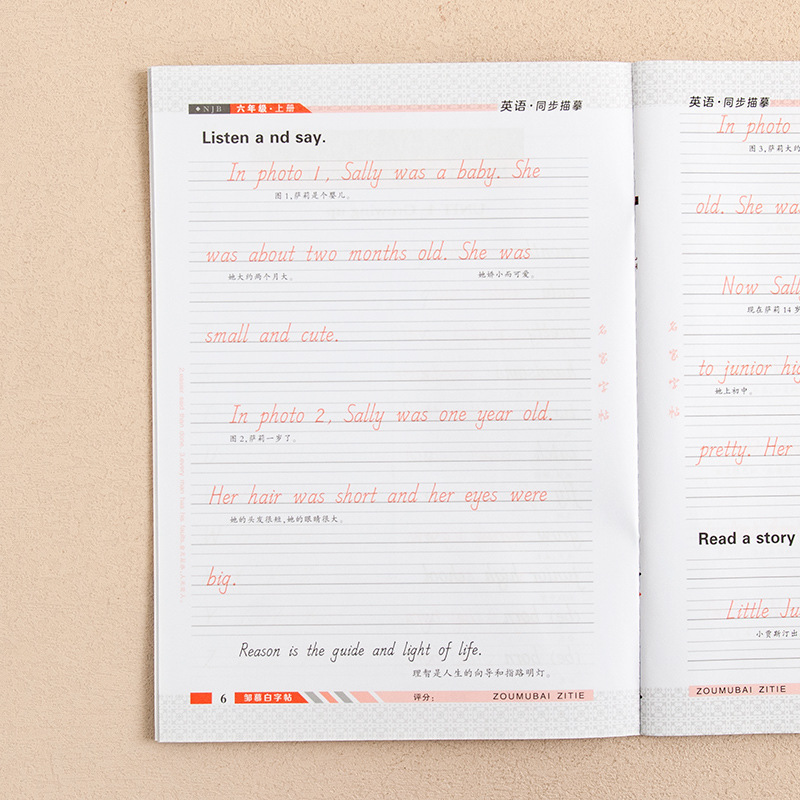 NJB 六年级·上册 英语·同步描摹
Listen a nd say.
In photo 1, Sally was a baby. She
图1,萨莉是个婴儿。
was about two months old. She was
她大约两个月大。 她娇小而可爱。
small and cute.
In photo 2, Sally was one year old.
图2,萨莉一岁了。
Her hair was short and her eyes were
她的头发很短,她的眼睛很大。
big.
Reason is the guide and light of life.
理智是人生的向导和指路明灯。
6 邹慕白字帖 评分: ZOUMUBAI ZITIE
名家字帖
英语·同步描摹
In photo
图3,萨莉大约
old. She was
Now Sall
现在萨莉14岁
to junior hig
她上初中。
pretty. Her
Read a story
Little Ju
小贾斯汀出
ZOUMUBAI ZITIE
名家字帖